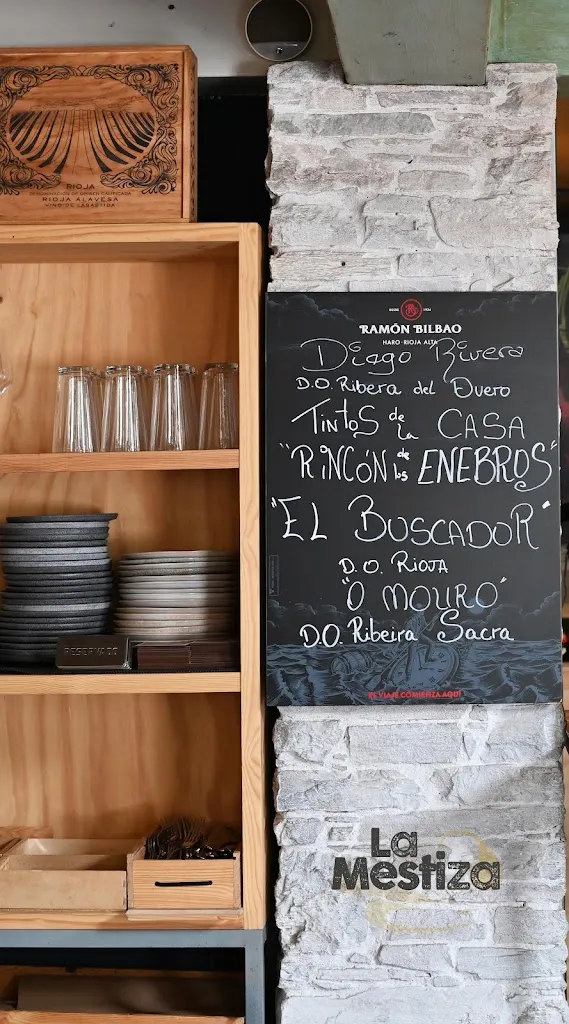 RIOJA
DENOMINACIÓN DE ORIGEN CALIFICADA
RIOJA ALAVESA
VINO DE LABASTIDA
DESDE 1924
RAMÓN BILBAO
HARO·RIOJA ALTA
Diego Rivera
D.O. Ribera del Duero
TINTOS de la CASA
"RINCÓN de los ENEBROS"
"EL BUSCADOR"
D.O. RIOJA
"O MOURO"
D.O. Ribeira Sacra
EL VIAJE COMIENZA AQUÍ
RESERVADO
La
Mestiza